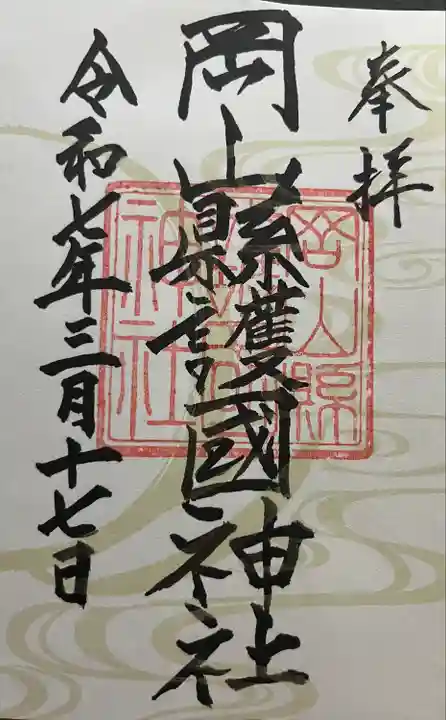 奉拝
岡山縣護國神社
岡山縣
護國
神社
令和七年三月十七日